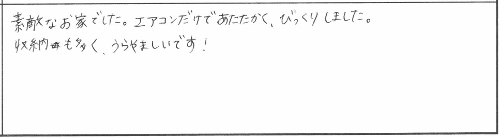 素敵なお家でした。エアコンだけであたたかく、びっくりしました。
収納も多く、うらやましいです!